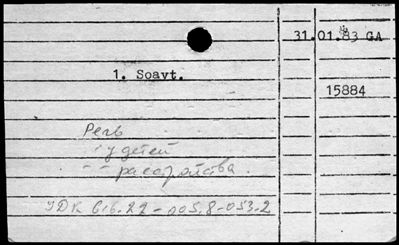 31.01.83 GA
1. Soavt.
15884
Речь
у детей
-- расстройства.
УДК 616.22-005.8-053.2